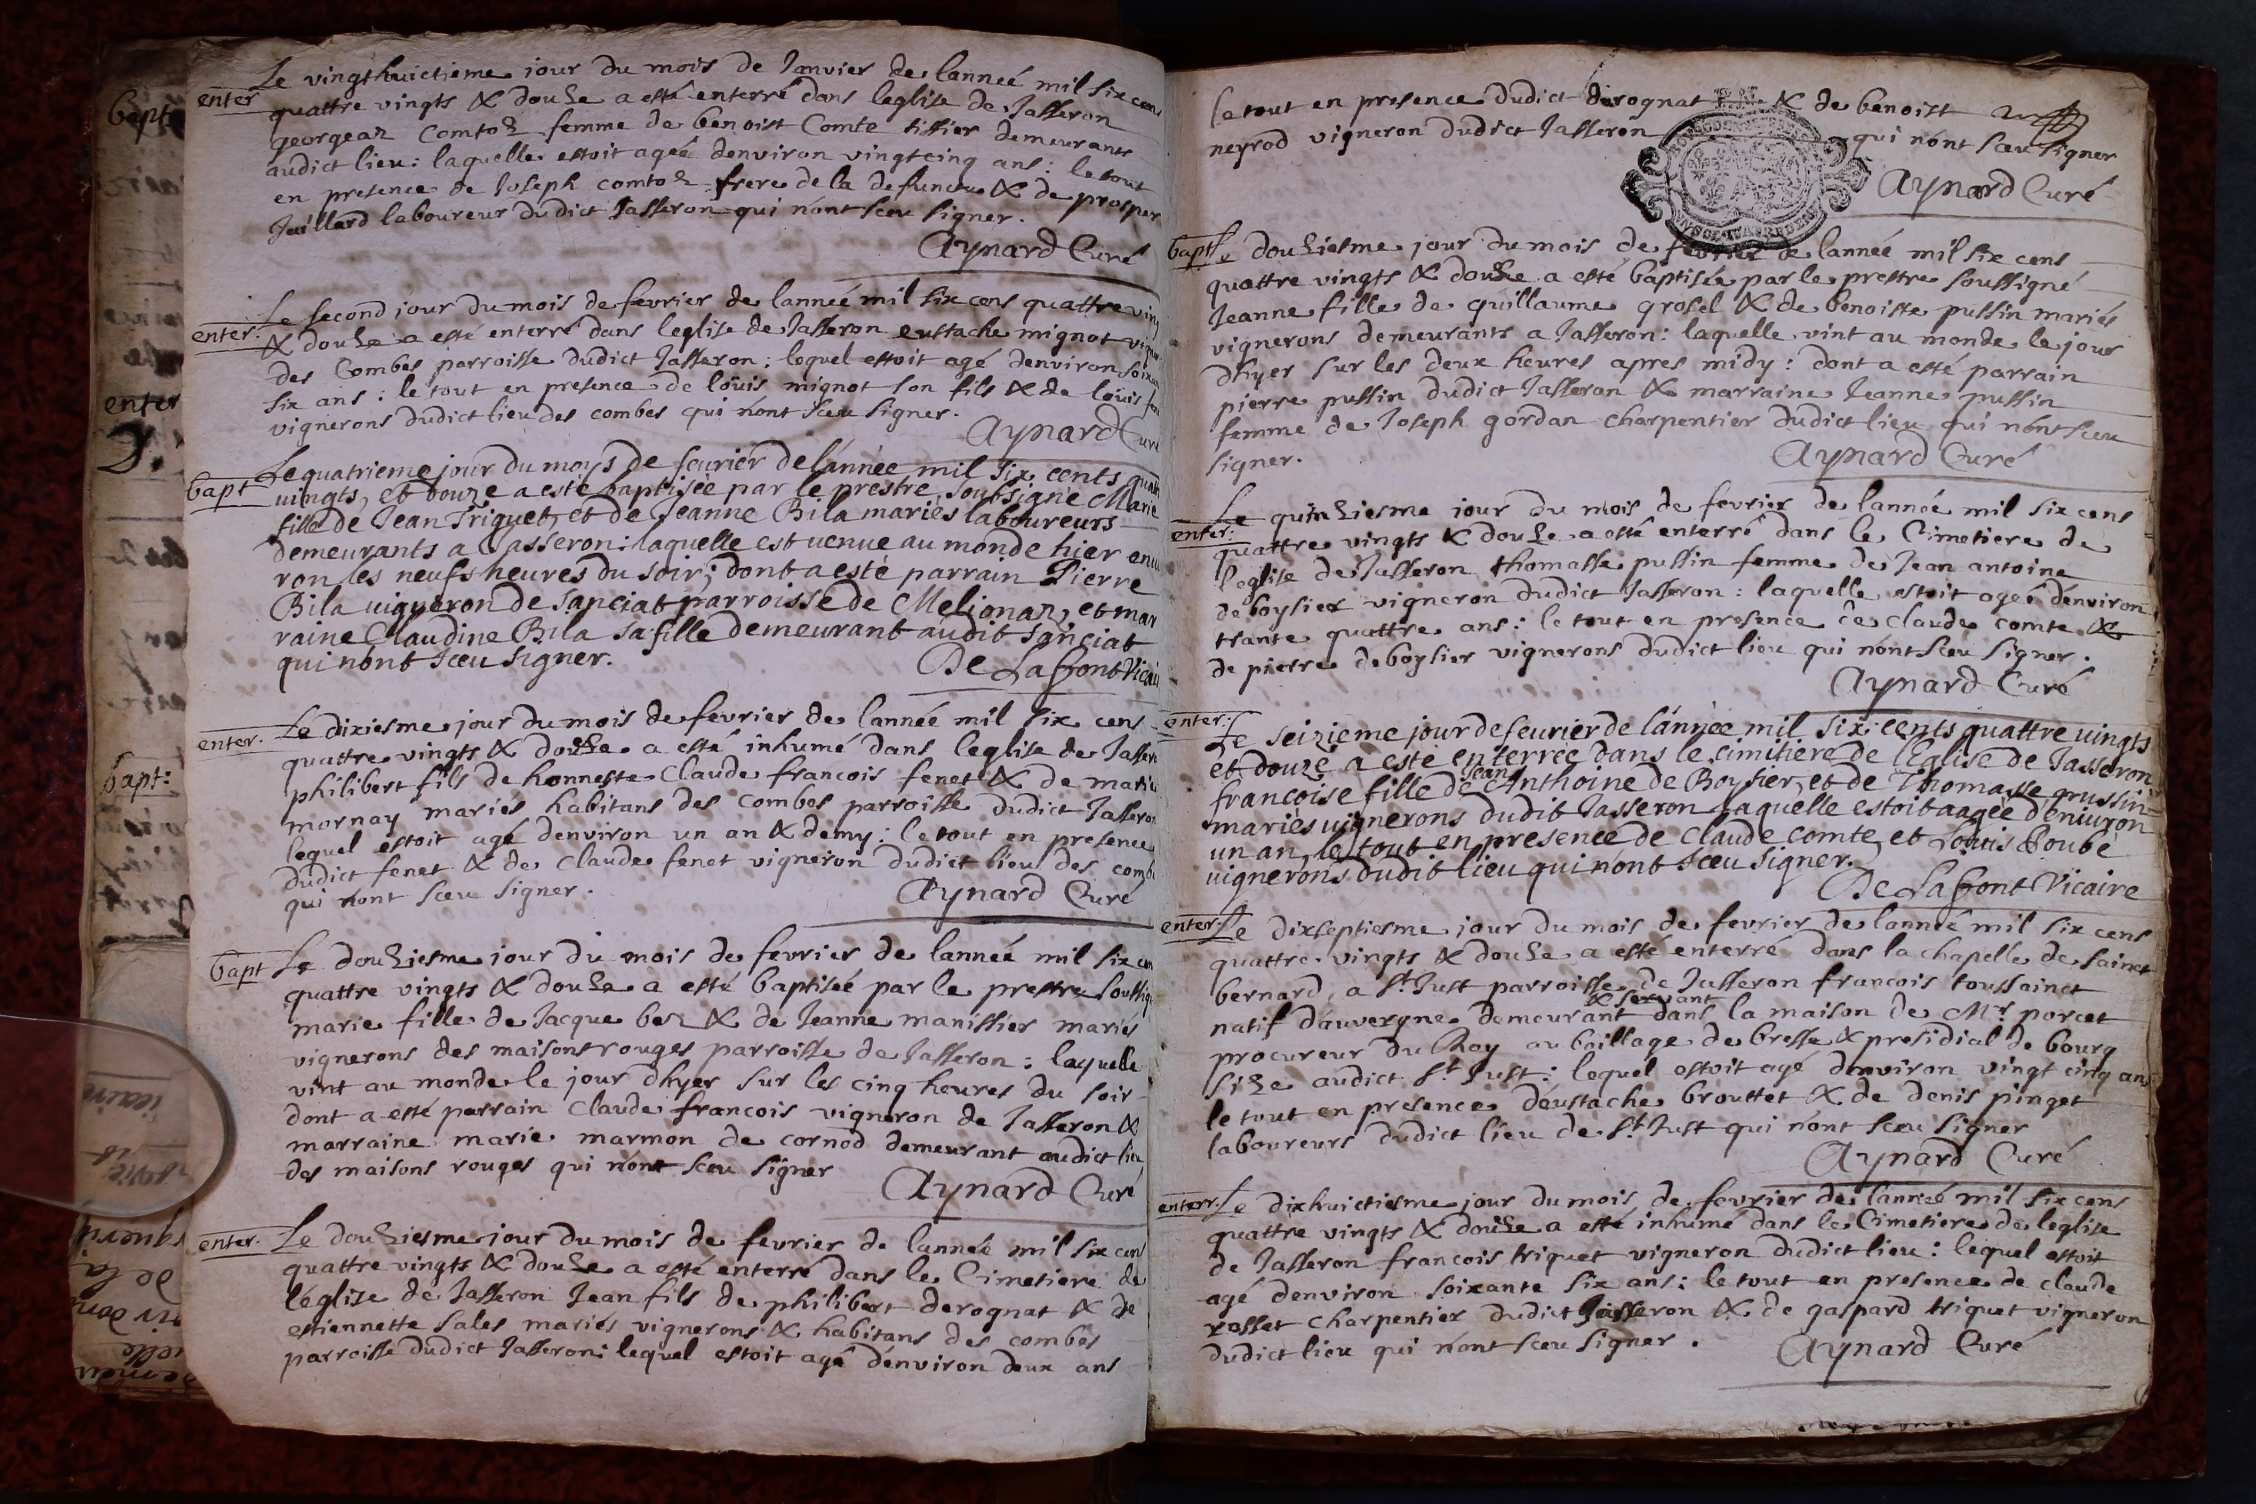 Le vingthuictieme jour du mois de Janvier de lanneé mil six cens
enter
quattre vingts & douze a esté enterré dans leglise de Jasseron
georgeaz Comtoz femme de benoist Comte tissier demeurants
audict lieu: laquelle estoit ageé denviron vingtcinq ans: le tout
en presence de Joseph comtoz frere de la defuncte & de prosper
Juillard laboureur dudict Jasseron qui n'ont sceu signer.
Aynard Curé
Le second jour du mois de fevrier de lanneé mil six cens quattre ving
enter.
& douze a esté enterré dans leglise de Jasseron eustache mignot
des Combes parroisse dudict Jasseron: lequel estoit agé denviron
six ans: le tout en presence de loüis mignot son fils & de loüis
vignerons dudict lieu des combes qui n'ont sceu signer.
Aynard Curé
Le quatrieme jour du moys de feurier de l'année mil six cents
bapt
uingts, et douze a esté baptisée par le prestre soubsigné Marie
fille de Jean Triquet, et de Jeanne Bila mariés laboureurs
demeurants a Jasseron: laquelle est uenue au monde hier enui
ron les neufs heures du soir; dont a esté parrain Pierre
Bila uigneron de sanciat parroisse de Melionaz, et mar
raine Claudine Bila sa fille demeurant audit sanciat
qui n'ont sceu signer.
De Lafont Vicai
Le dixiesme jour du mois de fevrier de lannée mil six cens
enter.
quattre vingts & douze a esté inhumé dans leglise de Jasser
philibert fils de honneste Claude francois fenet & de marie
mornay mariés habitans des combes parroisse dudict Jasseron
lequel estoit agé denviron un an & demy: le tout en presence
dudict fenet & de Claude fenet vigneron dudict lieu des comb
qui n'ont sceu signer.
Aynard Curé
bapt
Le douziesme jour du mois de fevrier de lanneé mil six cen
quattre vingts & douze a esté baptiseé par le prestre soussig
marie fille de Jacque bez & de Jeanne manissier mariés
vignerons des maisons rouges parroisse de Jasseron: laquelle
vint au monde le jour dhyer sur les cinq heures du soir
dont a esté parrain Claude francois vigneron de Jasseron &
marraine marie marmon de cornod demeurant audict lieu
des maisons rouges qui n'ont sceu signer
Aynard Curé
enter.
Le douziesme jour du mois de fevrier de lanneé mil six cens
quattre vingts & douze a esté enterré dans le Cimetiere de
léglize de Jasseron Jean fils de philibert derognat & de
estiennette sales mariés vignerons & habitans des combes
parroisse dudict Jasseron: lequel estoit agé denviron deux ans
le tout en presence dudict derognat & de benoist
neyrod vigneron dudict Jasseron qui n'ont sceu signer
Aynard Curé
bapt
Le douziesme jour du mois de fevrier de lanneé mil six cens
quattre vingts & douze a esté baptisée par le prestre soussigné
Jeanne fille de guillaume grosel & de benoiste pussin mariés
vignerons demeurants a Jasseron: laquelle vint au monde le jour
dhyer sur les deux heures apres midy: dont a esté parrain
pierre pussin dudict Jasseron & marraine Jeanne pussin
femme de Joseph gordan charpentier dudict lieu qui n'ont sceu
signer.
Aynard Curé
Le quinziesme jour du mois de fevrier de lannée mil six cens
enter.
quattre vingts & douze a esté enterré dans le Cimetiere de
leglise de Jasseron thomasse pussin femme de Jean antoine
deboysier vigneron dudict Jasseron: laquelle estoit ageé denviron
trante quattre ans: le tout en presence de claude comte &
de pierre deboysier vignerons dudict lieu qui n'ont sceu signer.
Aynard Curé
enter.
Le seizieme jour de feurier de l'année mil six cents quattre uingts
et douze a esté enterrée dans le cimitiere de l'Eglise de Jasseron
francoise fille de Jean Anthoine de Boysier, et de Thomasse pussin
mariés uignerons dudit Jasseron laquelle estoit aagée d'enuiron
un an, le tout en presence de Claude comte, et Loüis Goubé
uignerons dudit lieu qui n'ont sceu signer.
De Lafont Vicaire
enter.
Le dixseptiesme jour du mois de fevrier de lanneé mil six cens
quattre vingts & douze a esté enterré dans la chapelle de sainct
bernard, a St Just parroisse de Jasseron francois toussainct
natif d'auvergne demeurant & servant dans la maison de Mr porcet
procureur du Roy au baillage de bresse & presidial de bourg
size audict St Just: lequel estoit agé denviron vingt cinq ans
le tout en presence d'eustache brouttet & de denis pinget
laboureurs dudict lieu de St Just qui n'ont sceu signer
Aynard Curé
enterr.
Le dixhuictiesme jour du mois de fevrier de lanneé mil six cens
quattre vingts & douze a esté inhumé dans le Cimetiere de leglise
de Jasseron francois triquet vigneron dudict lieu: lequel estoit
agé denviron soixante six ans: le tout en presence de claude
rosset charpentier dudict Jasseron & de gaspard triquet vigneron
dudict lieu qui n'ont sceu signer.
Aynard Curé